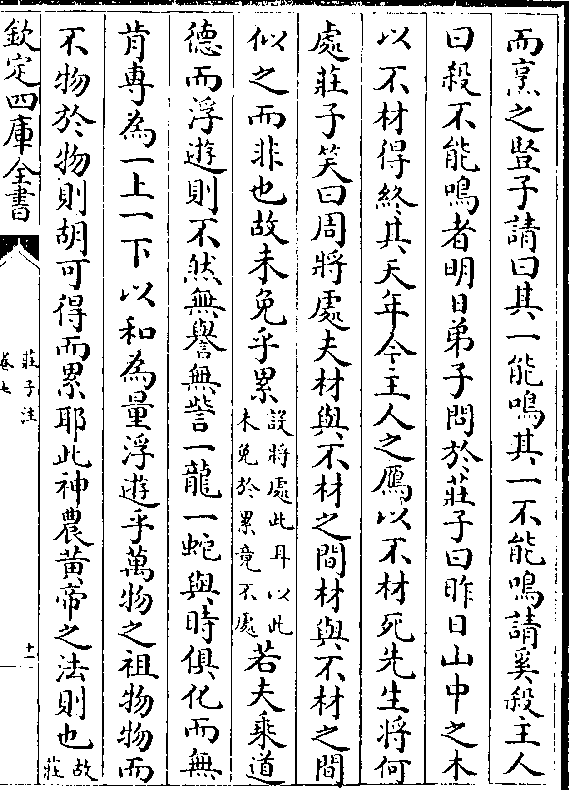 而烹之豎子請曰其一能鳴其一不能鳴請奚殺主人
曰殺不能鳴者明日弟子問於莊子曰昨日山中之木
以不材得終其天年今主人之鴈以不材死先生將何
處莊子笑曰周將處夫材與不材之間材與不材之間
似之而非也故未免乎累設將處此耳以此未免於累竟不處若夫乘道
德而浮遊則不然無譽無訾一龍一蛇與時俱化而無
肯專為一上一下以和為量浮遊乎萬物之祖物物而
不物於物則胡可得而累耶此神農黃帝之法則也故莊
欽定四庫全書
莊子注
卷七
十一